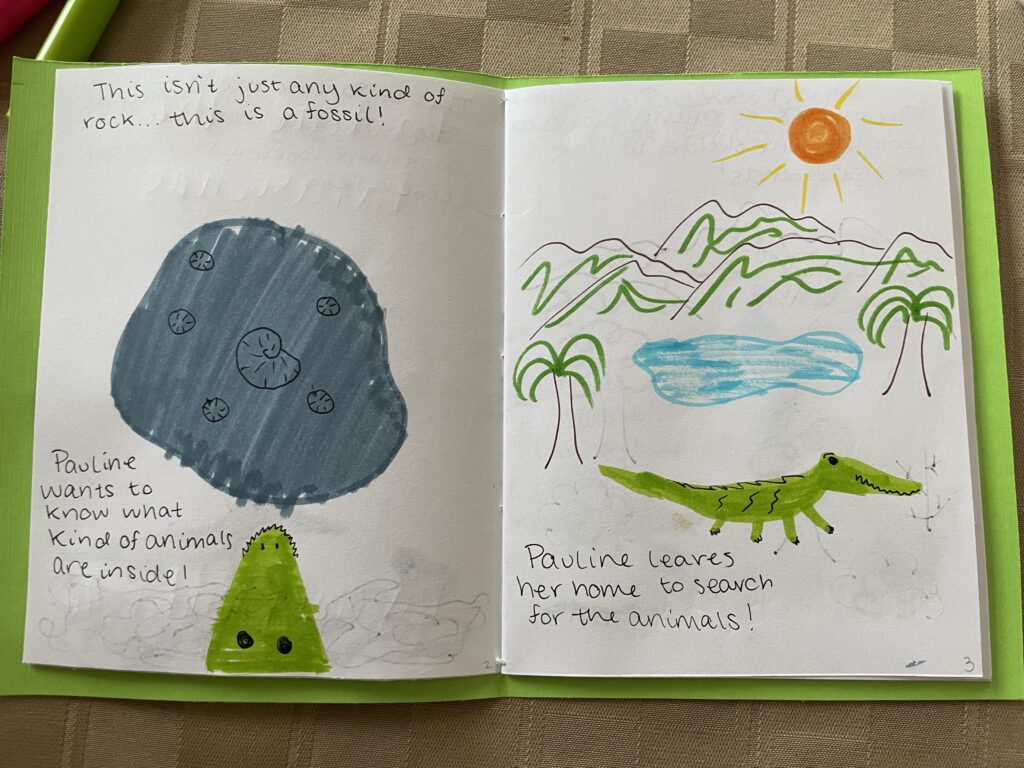 This isn't just any kind of
rock... this is a fossil!
Pauline
wants to
know what
kind of animals
are inside!
2
Pauline leaves
her home to search
for the animals!
3